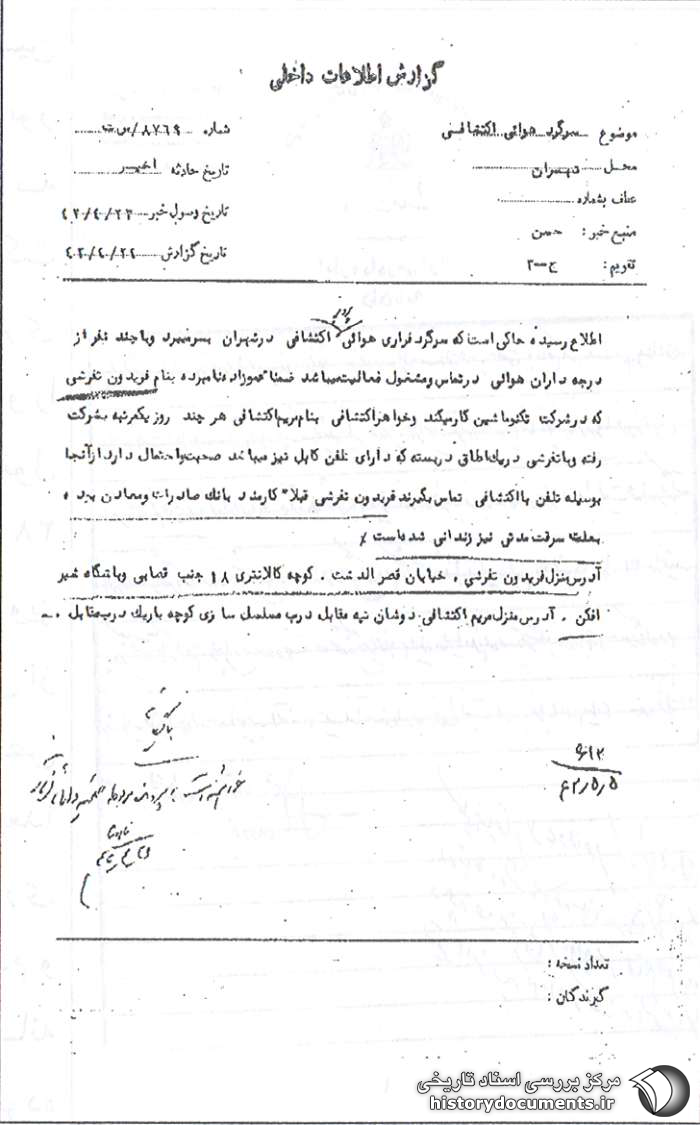 گزارش اطلاعات داخلی
موضوع سرگرد هوائی اکتشافی
شماره ۸۷۶۹/س ت
محل تهران
تاریخ حادثه اخیر
عطف بشماره
تاریخ وصول خبر ۴۲/۴/۲۳
منبع خبر: حسن
تاریخ گزارش ۴۲/۴/۲۴
تقویم: ج-۳
پرویز
اطلاع رسیده حاکی است که سرگرد فراری هوائی اکتشافی در تهران بسر میبرد و با چند نفر از
درجه داران هوائی در تماس و مشغول فعالیت میباشد ضمنا عموزاده نامبرده بنام فریدون تفرشی
که در شرکت تکنوماشین کار میکند و خواهر اکتشافی بنام مریم اکتشافی هر چند روز یکمرتبه بشرکت
رفته و با تفرشی در یک اطاق در بسته که دارای تلفن کابل نیز میباشد صحبت و احتمال دارد از آنجا
بوسیله تلفن با اکتشافی تماس بگیرند فریدون تفرشی قبلا کارمند بانک صادرات و معادن بوده
بعلت سرقت مدتی نیز زندانی شده است
آدرس منزل فریدون تفرشی، خیابان قصرالدشت، کوچه کلانتری ۱۸ جنب قصابی و باشگاه شیر
افکن. آدرس منزل مریم اکتشافی دوشان تپه مقابل درب مسلسل سازی کوچه باریک درب مقابل.
بایگانی
۶۱۲
۴۲/۵/۵
تعداد نسخه:
گیرندگان:
مرکز بررسی اسناد تاریخی
historydocuments.ir